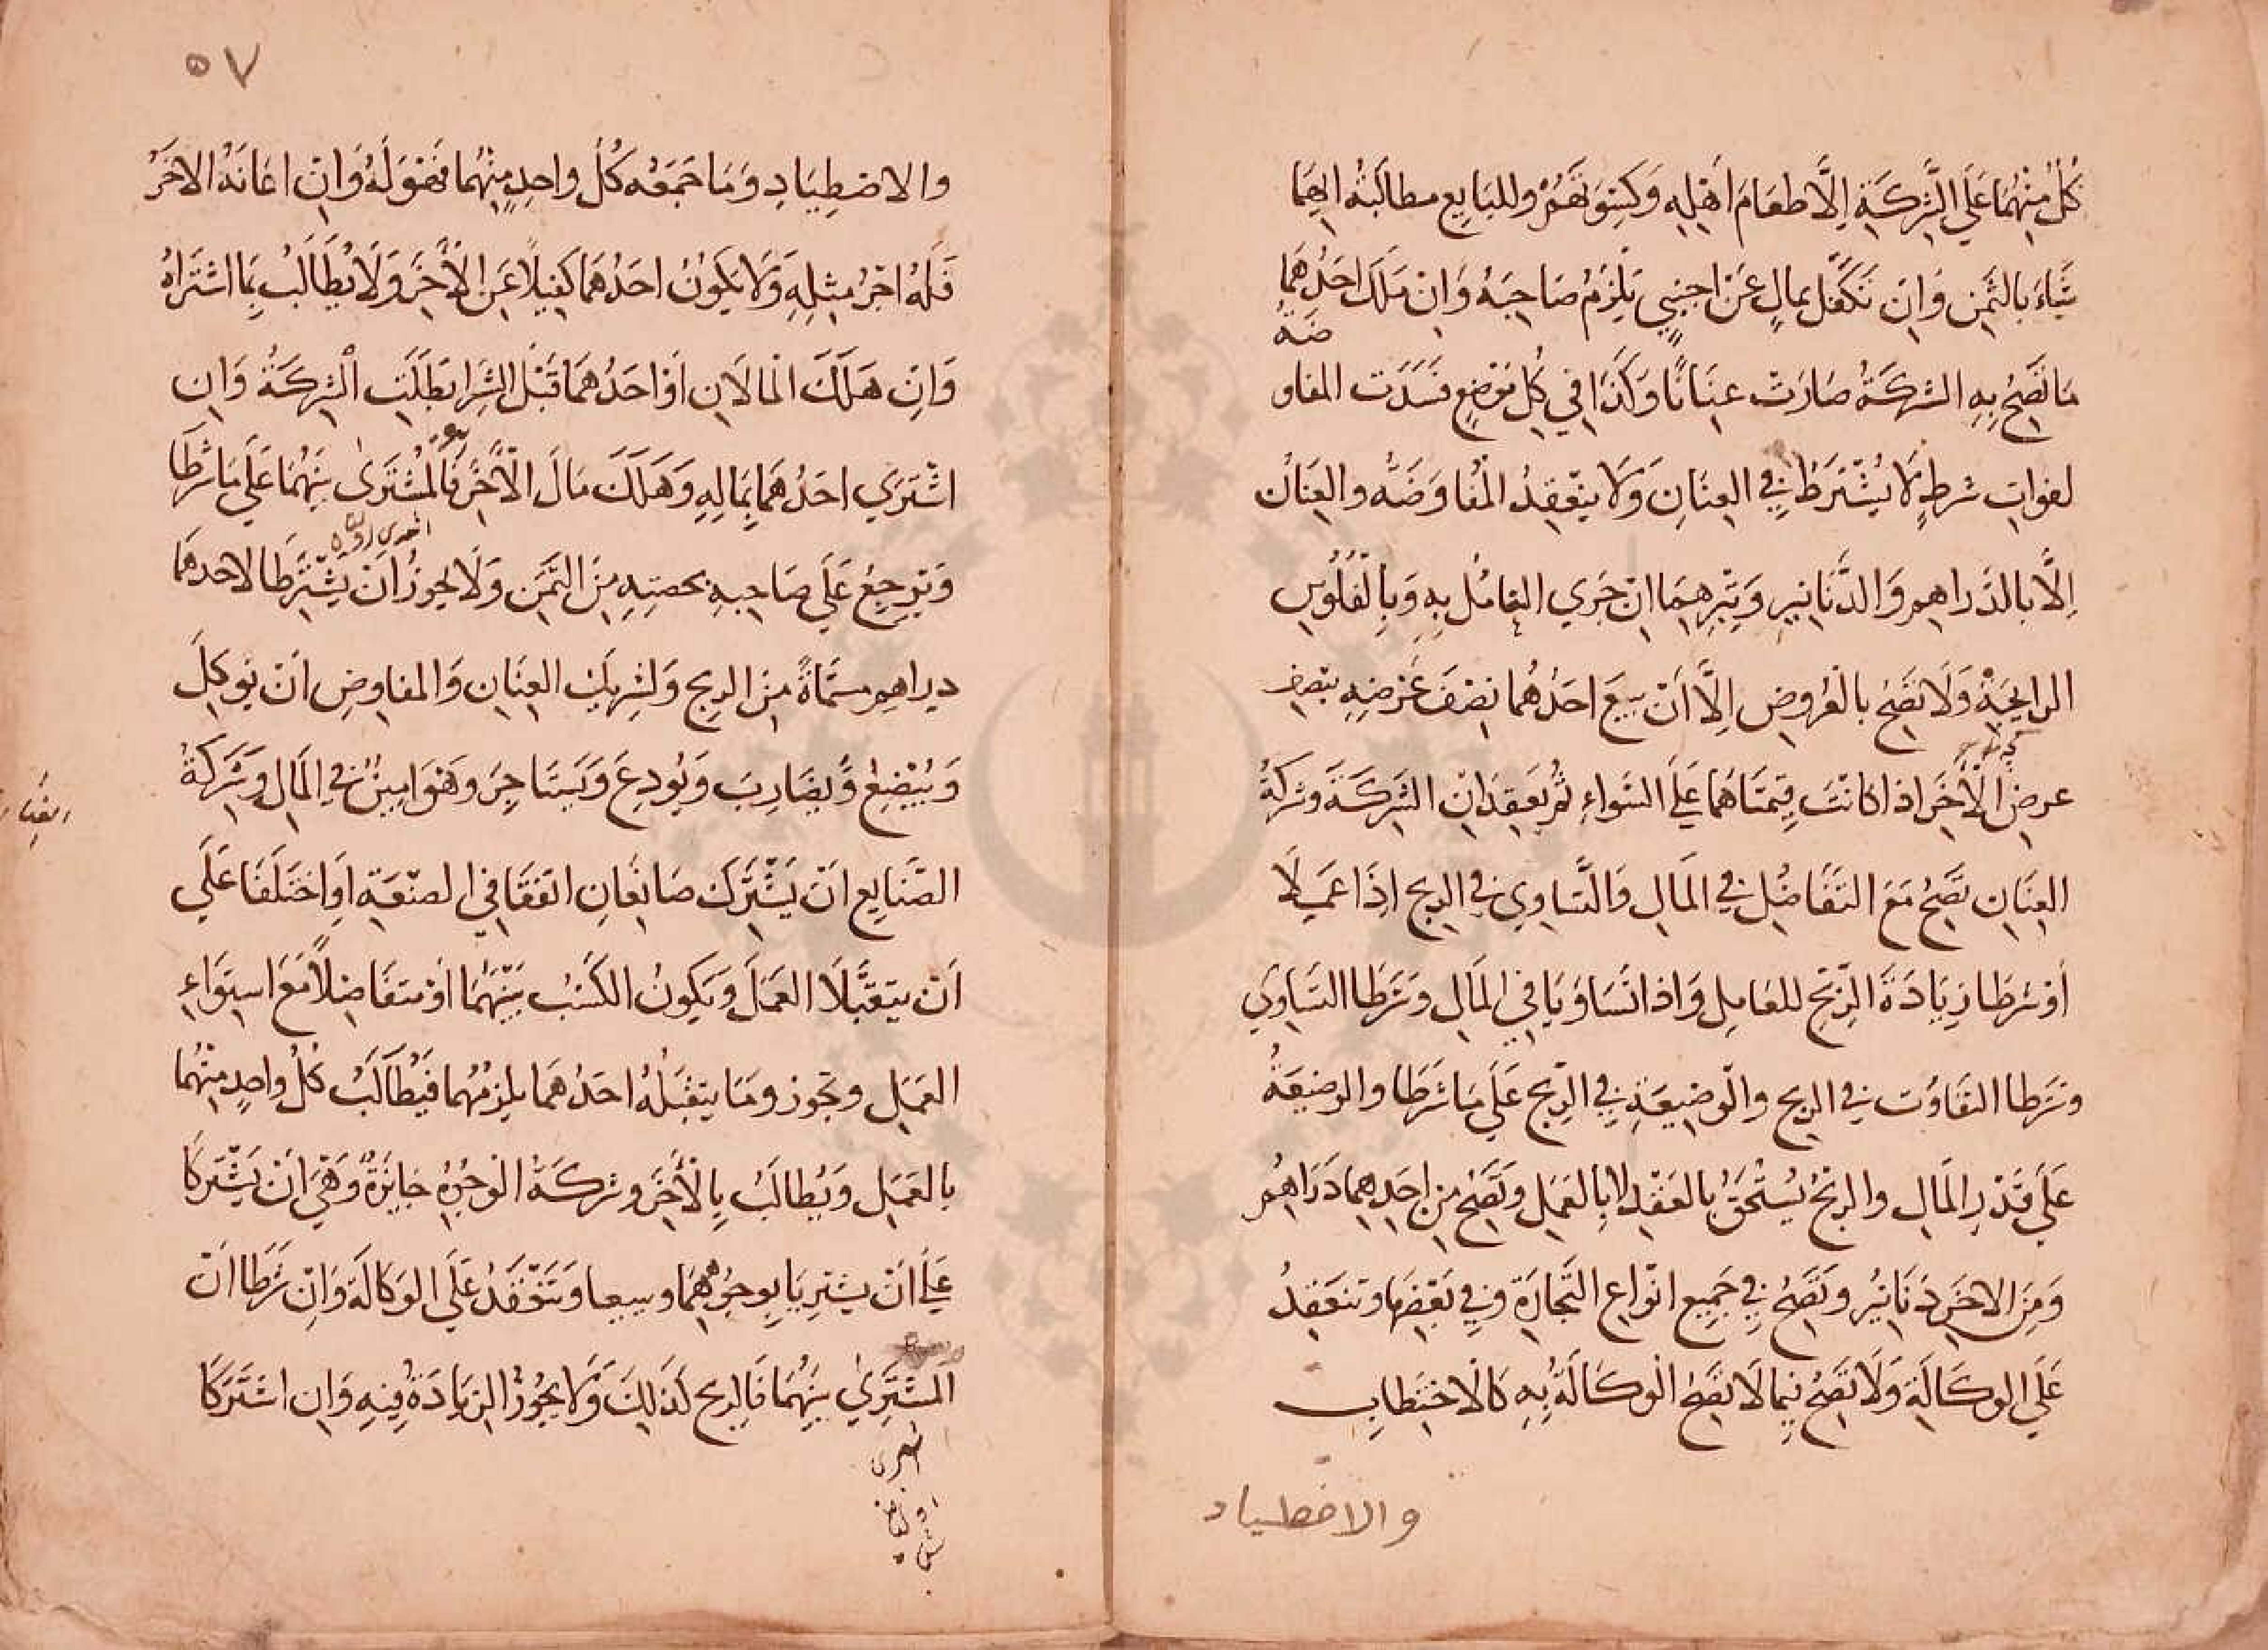 كُلٌّ مِنْهُمَا عَلَي الشِّرِكَةِ اِلَّا طَعَامَ اَهْلِهِ وَكِسْوَتَهُمْ وللبَايِع مطالبَتُه ايهِمَا
شَاءَ بالثَمِن وَاِن تَكَفَّل بمالٍ عَنْ اجنبيٍ يَلْزَمُ صَاحِبَهُ وَاِنْ مَلَكَ احَدُهُمَا
مَا تَصِحُّ بِهِ الشركَةُ صَارَتْ عِنَانًا وَكَذَا في كِل مَوْضِعٍ فسَدَت المفاو
ضة
لفواتِ شرطٍ لَا يُشْتَرَطُ فِي العِنَانِ وَلَا ينْعَقِدُ المُفَاوَضَةُ والعِنَانُ
اِلَّا بالدَراهِم وَالدَّنَانِيرِ وَتِبْرِهِمَا اِنْ جَرَي التعَامُل بِهِ وَبِالْفُلُوسِ
الرايجَةِ وَلَا تَصِحُ بالْعُروضِ اِلَّا اَنْ يبيعَ احَدُهُمَا نِصْفَ عَرْضِهِ بنِصْفِ
عرضِ الْآخَرَ اذا كانَتْ قيمَتَاهُمَا عَلَي السَواءِ ثُمَّ يَعقِدَانِ الشِرِكَةَ وَشركةُ
العِنَانِ تَصِحُ مَعَ التَفَاضُلِ في المَالِ وَالتَّسَاوِي في الربحِ اِذَا عَمِلَا
اَوْ شرَطَا زِيَادَةَ الرِّبْحِ للعَامِلِ وَاذا تَسَاوَيَا فِي المَالِ وَشَرَطَا التَسَاوِي
وَشَرَطا التفَاوُت في الربح والوَضِيعَةِ في الرِّبْحِ عَلَي مَا شَرَطَا والوضيعَةُ
عَلَي قَدْرِ المَالِ والربحُ يُسْتَحَقُّ بالعَقْدِ لا بالعَمَلِ وَتَصِحُ مِن احَدِهِما دَرَاهِمُ
وَمِنَ الاخَرِ دَنَانِيْرُ وَتَصِحُ فِي جَمِيعِ انْوَاعِ التِجَارَةِ وَفِي بَعْضِهَا وَتنعَقِدُ
عَلَي الوكَالَةِ وَلَا تَصِحُ فِيمَا لَا تَصِحُ الْوكَالَةُ بِهِ كَالْاحْتِطَابِ
والاصطياد
٥٧
والاصْطِيَادِ وَمَا جَمَعَهُ كُلُّ واحِدٍ مِنْهُمَا فَهُوَ لَهُ وَاِنْ اعَانَهُ الاخَرُ
فَلَهُ اجْرُ مِثلِهِ وَلَا يَكُونُ احَدُهُمَا كَفِيْلًا عَنِ الْاخَرِ وَلَا يُطَالَبُ بِمَا اشتَرَاهُ
وَاِنْ هَلَكَ الْمَالَانِ اَوْ احَدُهُمَا قَبْلَ الشِرَا بَطَلَتِ الْشِركَةُ وَاِن
اشْتَرَي احَدُهُمَا بِمَالِهِ وَهَلَكَ مَالَ الْآخَرِ فَالْمُشْتَرىٰ بَيْنَهُمَا عَلَي مَا شَرَطَا
وَيَرجِعُ عَلَي صَاحِبِهِ بحصتِهِ مِنَ الثَمَنِ وَلَا يجوزُ اَنْ يَشْتَرِطَا لاحدهِمَا
دراهم مسَمّاةً مِنَ الربح وَلِشَرِيكَيْ العِنَانِ وَالمفاوِضِ اَنْ يُوكِلَ
وَيُبْضِعَ وَيُضَارِبَ وَيُودِعَ وَيَستَاجِرَ وَهُوَ امِينٌ فِي المَالِ وَشَرِكَةُ
الصَّنَايِعِ اَنْ يَشْتَرِكَ صَانِعَانِ اتفَقَا فِي الصنْعَةِ اَوِ اخْتَلَفَا عَلَي
اَنْ يتقَبَّلَا العَمَلَ وَيَكُونُ الكَسْبُ بَيْنَهُمَا اَوْ متَفَاضِلًا مَعَ استِوَاءِ
العَمَلِ وتجوز وَمَا يتقَبَلُهُ احَدُهُمَا يلزمُهُما فَيُطَالَبُ كُلُ واحِدٍ مِنْهُمَا
بالعَمَلِ وَيُطَالَبُ بِالْأَخَرِ وشركَةُ الْوجُوهِ جَايزَةٌ وَهْيَ اَنْ يَشْتَرِكَا
عَلَي اَنْ يشتَرِيَا بِوجُوهِهِمَا ويبيعا وَتَنْعَقَدُ عَلَي الوكَالَةِ وَاِنْ شَرَطَا اَنْ
المشْتَرىٰ بَيْنَهُمَا فَالربح كَذَلِكَ وَلَا يَجُوزُ الزيَادَةُ فِيهِ وَاِن اشتَرَكَا